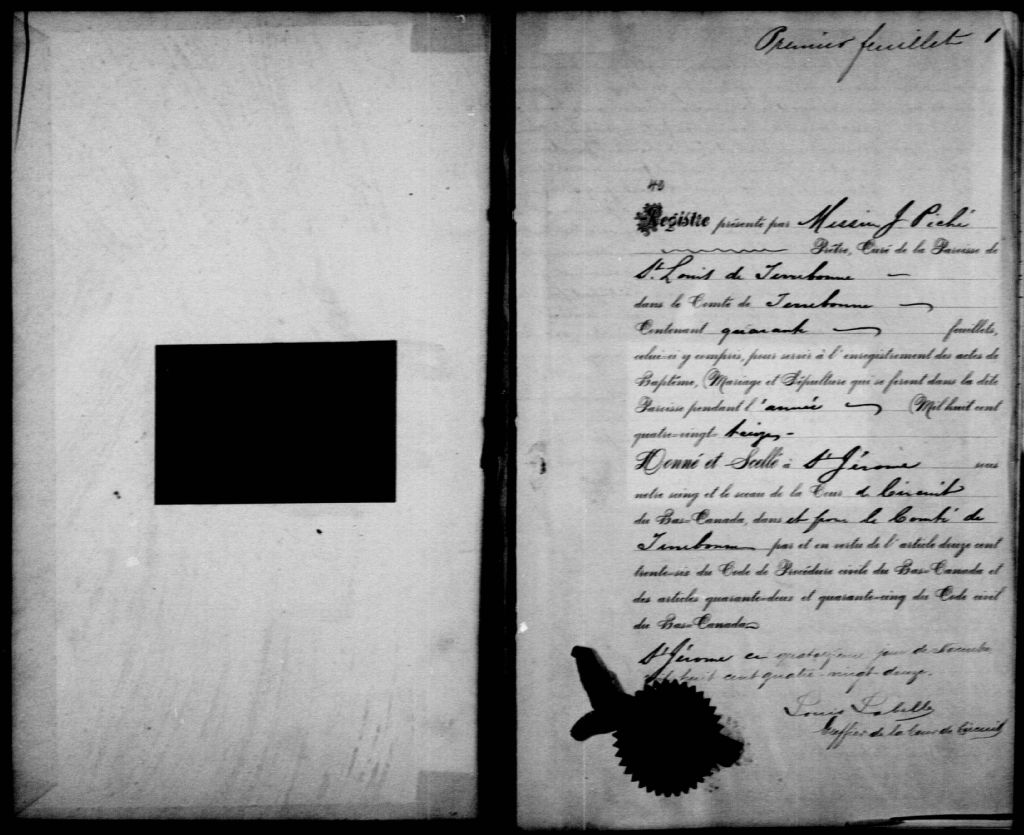 Premier feuillet 1
40
Registre présenté par Messire J Piché
Prêtre, Curé de la Paroisse de
St. Louis de Terrebonne
dans le Comté de Terrebonne
Contenant quarante feuillets,
celui-ci y compris, pour servir à l'enregistrement des actes de
Baptême, Mariage et Sépulture qui se feront dans la dite
Paroisse pendant l'année Mil huit cent
quatre-vingt- treize,-
Donné et Scellé à St Jérome sous
notre seing et le sceau de la Cour de Circuit
du Bas-Canada, dans et pour le Comté de
Terrebonne par et en vertu de l'article douze cent
trente-six du Code de Procédure civile du Bas-Canada et
des articles quarante-deux et quarante-cinq du Code civil
du Bas-Canada
St Jérome ce quatorzieme jour de Décembre
mil huit cent quatre-vingt-douze.
Louis Labelle
Greffier de la Cour de Circuit